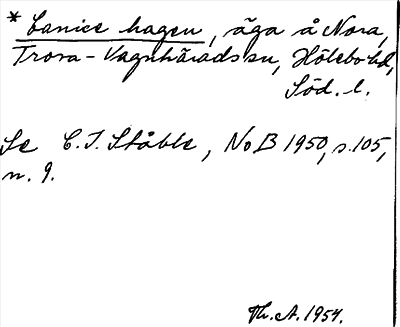 * Canice hagen, äga å Nora,
Trosa-Vagnhäradssn, Hölebo hd,
Söd. l.
Se C. I. Ståhle, NoB 1950, s. 105,
n. 9.
Th. A. 1954.